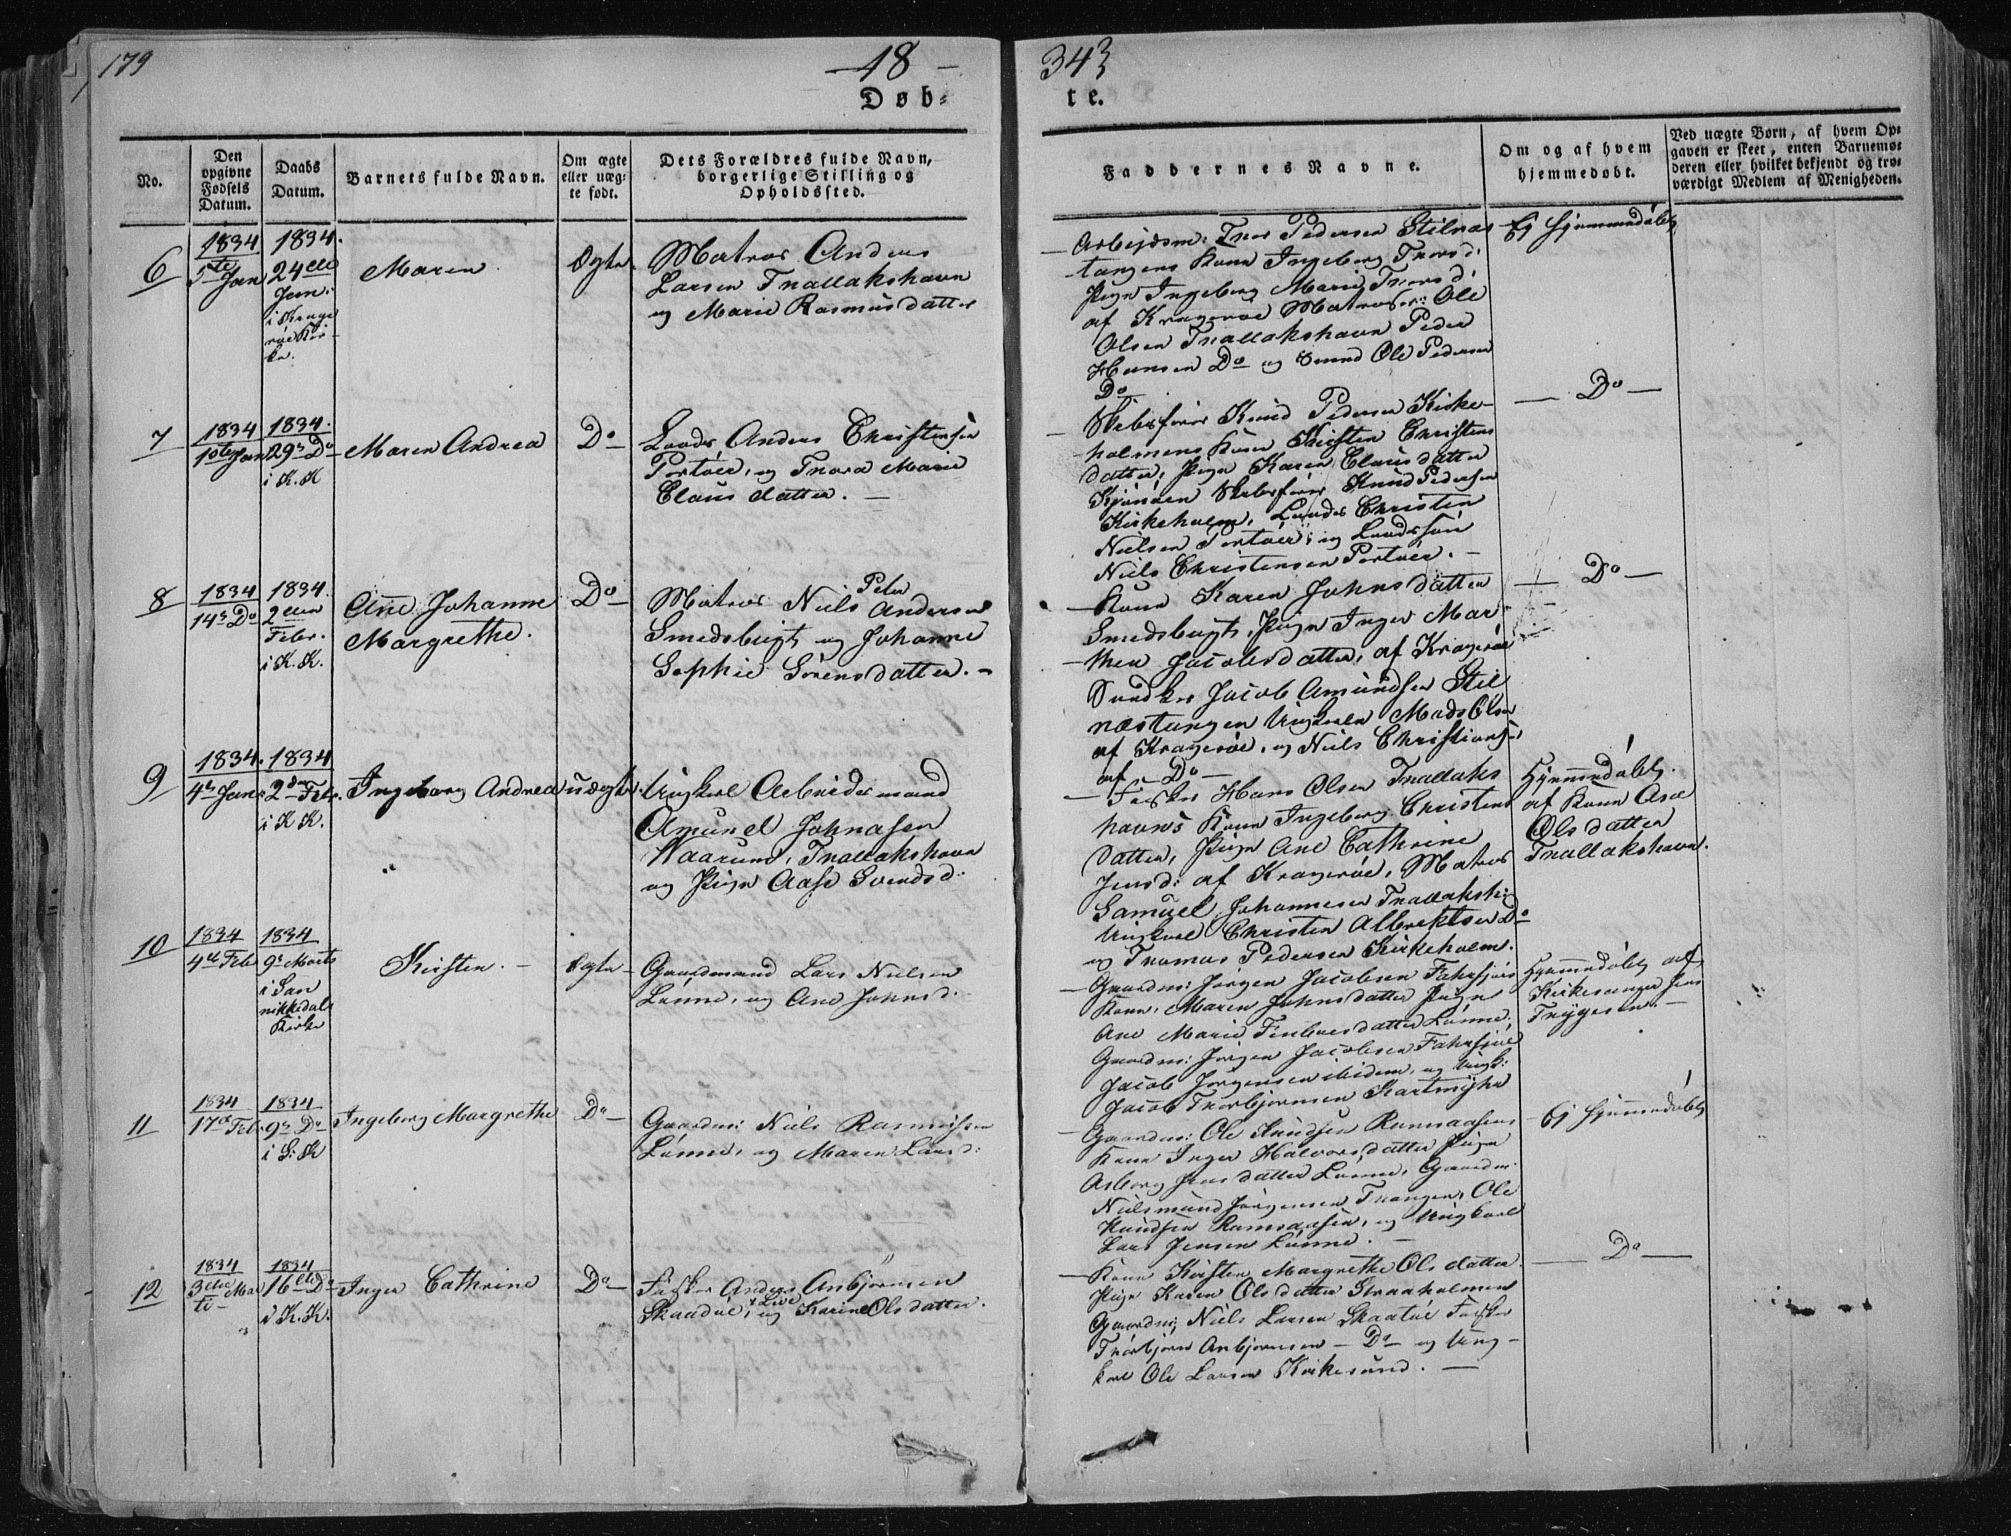 179
18
343
Døb-
te.
No.
Den
opgivne
Fødsels
Datum.
Daabs
Datum.
Barnets fulde Navn.
Om ægte
eller uæg-
te født.
Dets Forældres fulde Navn,
borgerlige Stilling og
Opholdssted.
Faddernes Navne.
Om og af hvem
hjemmedøbt.
Ved uægte Børn, af hvem Op-
gaven er skeet, enten Barnemo-
deren eller hvilket bekjendt og tro-
værdigt Medlem af Menigheden.
6
1834
5te Jan
1834.
24de
Jan.
i Krage
röe Kir-
ke.
Maren
Ægte
Matros Anders
Larsen Tnallakshavn
og Marie Rasmusdatter
Arbejdsm: Peder­sen Stilnæs
tangens Kone Ingeborg
Pige Ingeborg Marie
af Krageröe Matroser: Ole
Olsen Tnallakshavn Peder
Hansen Do og Ole Pedersen
Do
Ej hjemmedöbt
7
1834
10te Jan
1834.
29de Do
i K. K
Maren Andrea
Do
Lods Anders Christensen
Portöer, og Tnora Marie
Claus datter. —
Skibsförer Knud Pedersen Kirke-
holmens Kone Kirsten Christens
datter, Pige Karen Clausdatter
Skibsförer Knud Pedersen
Kirkeholm, Lods Christen
Nielsen Portöer, og Lodssön
Niels Christensen Portöer. —
— Do —
8
1834
14de Do
1834.
2den
Febr.
i K. K.
Ane Johanne
Margrethe.
Do
Matros Niels Peter Andersen
Smedsbugt og Johanne
Sophie Sörensdatter. —
Kone Karen Johnsdatter
Smedsbugt, Pige Inger Mar-
then Jacobsdatter, af Krageröe
Jacob Amundsen Stil
næstangen Ungkarle Mads Olsen
af Krageröe, og Niels Christians:
af — Do —
— Do —
9
1834.
4de Jan
1834
2den Feb.
i K K.
Ingeborg Andrea
uægte
Ungkarl Arbeidsmand
Amund Johnasen
Waarum, Tnallakshavn
og Pige Aase Svendsd:
Fisker Hans Olsen Tnallaks
havns Kone Ingeborg Christens
datter, Pige Ane Cathrine
Jensd: af Krageröe, Matros
Samuel Johannesen Tnallaksh:
Ungkarl Christen Albrektsen Do
og Tnomas Pedersen Kirkeholm.
Hjemmedöbt
af Kone Aase
Olsdatter
Tnallakshavn.
10
1834
4de Feb
1834
9de Marts
i San
nikkedals
Kirke
Kirsten. —
Ægte
Gaardmand Lars Nielsen
Lönne, og Ane Johnsd.
Gaardm: Jörgen Jacobsen Fahrsjöes
Kone, Maren Johnsdatter Pige
Ane Marie datter Lönne
Gaardm: Jörgen Jacobsen Fahrsjöe
Jacob Jörgensen ibidem, og Ungk:
Jacob Tnorbjornsen
Hjemmedöbt af
Kirkesanger Jens
Trygesen. —
11
1834
17de Feb.
1834
9de Do
i S. K
Ingeborg Margrethe
Do
Gaardm: Niels Rasmussen
Lönne, og Maren Larsd:
Gaardm: Ole Knudsen Ramsaasens
Kone Inger Halvorsdatter Pige
Asborg Jensdatter Lönne, Gaardm.
Nielsmund Jörgensen Tnangen, Ole
Knudsen Ramsaasen, og Ungkarl
Lars Jensen Lönne. —
Ej hjemmedöbt
12
1834
3die Mar
ti
1834
16de Do
i K. K.
Inger Cathrine
Do
Fisker Anders Anbjörnsen
Skaadöe, og Karine Olsdatter.
Kone Kirsten Margrethe Olsdatter.
Pige Karen Olsdatter Straaholmen
Gaardm: Niels Larsen Skaatöe Fisker
Tnorbjörn Anbjornsen — Do — og Ung-
karl Ole Larsen Kirkesund. —
— Do —